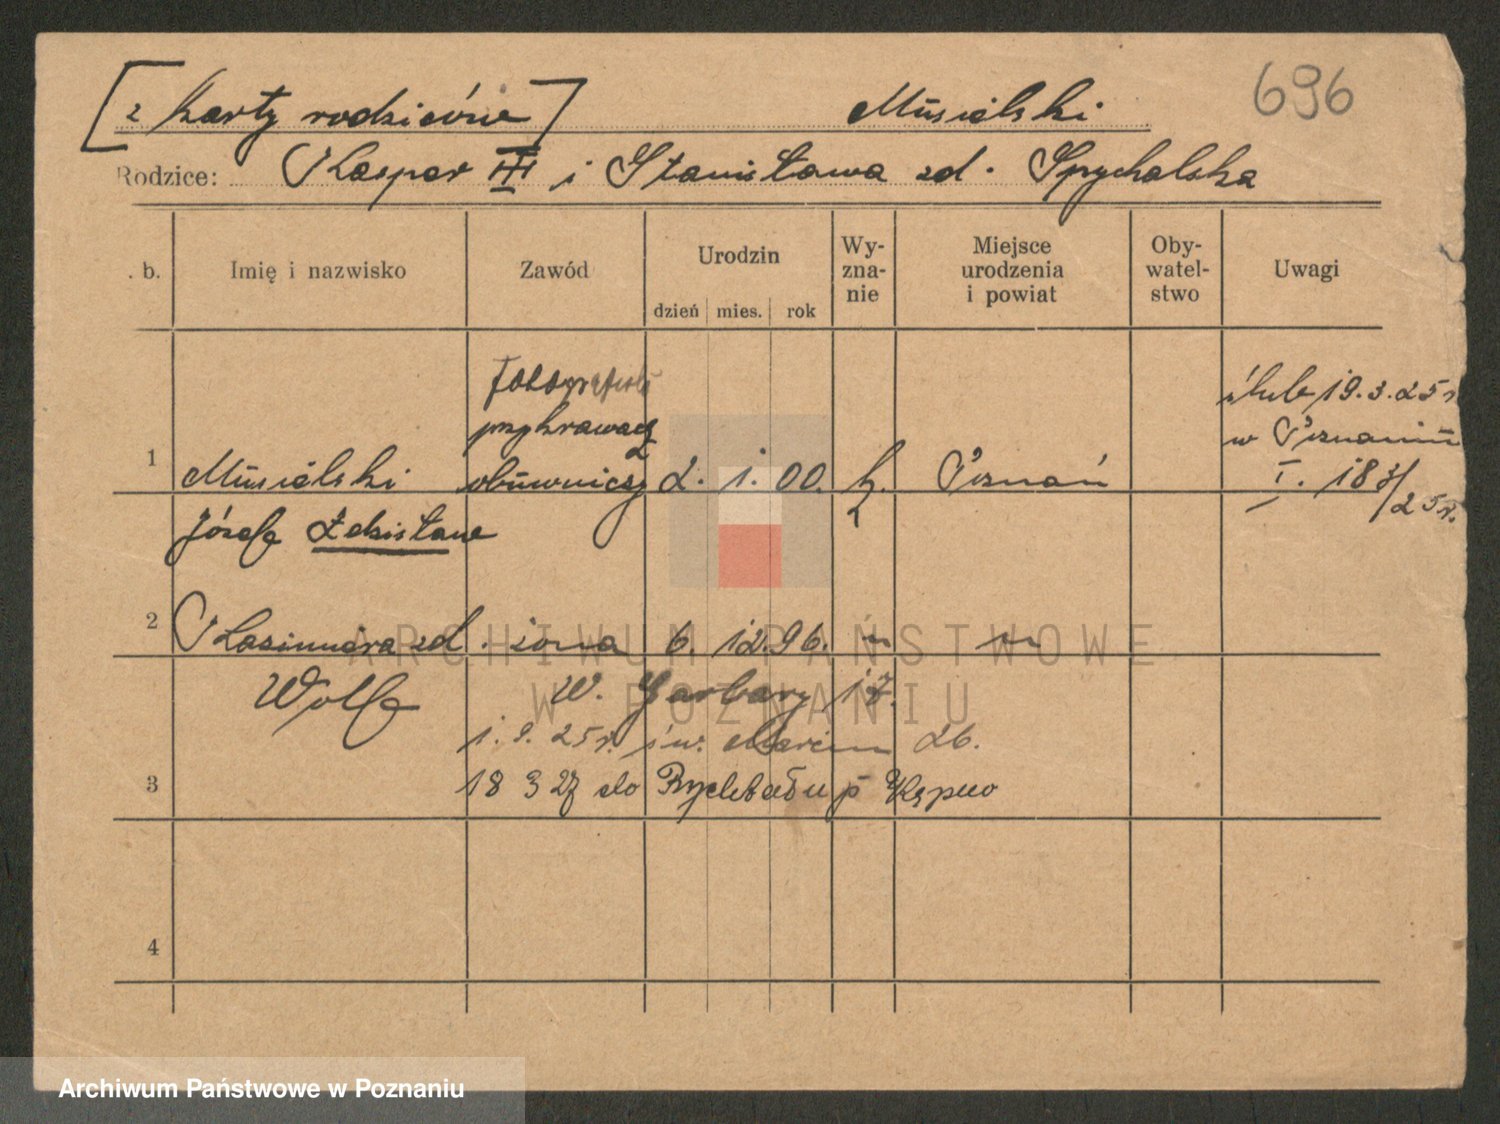 [z karty rodziców] Musielski 696
Rodzice: Kasper III i Stanisława zd. Spychalska
. b. Imię i nazwisko Zawód Urodzin Wy- Miejsce Oby- Uwagi
zna- urodzenia watel-
nie i powiat stwo
dzień mies. rok
przykrawacz ślub 19.3.25 r
w Poznaniu
1 Musielski obuwniczy 2. 1. 00. k. Poznań I. 183/
25 r.
Józef Zdzisław
2 Kazimiera zd. żona 6. 12. 96. " "
Wolf W. Garbary 17.
1. 9. 25 r. św. Marcin 26.
3 18 3 27 do Rychtału p Kępno
4
ARCHIWUM PAŃSTWOWE
W POZNANIU
Archiwum Państwowe w Poznaniu